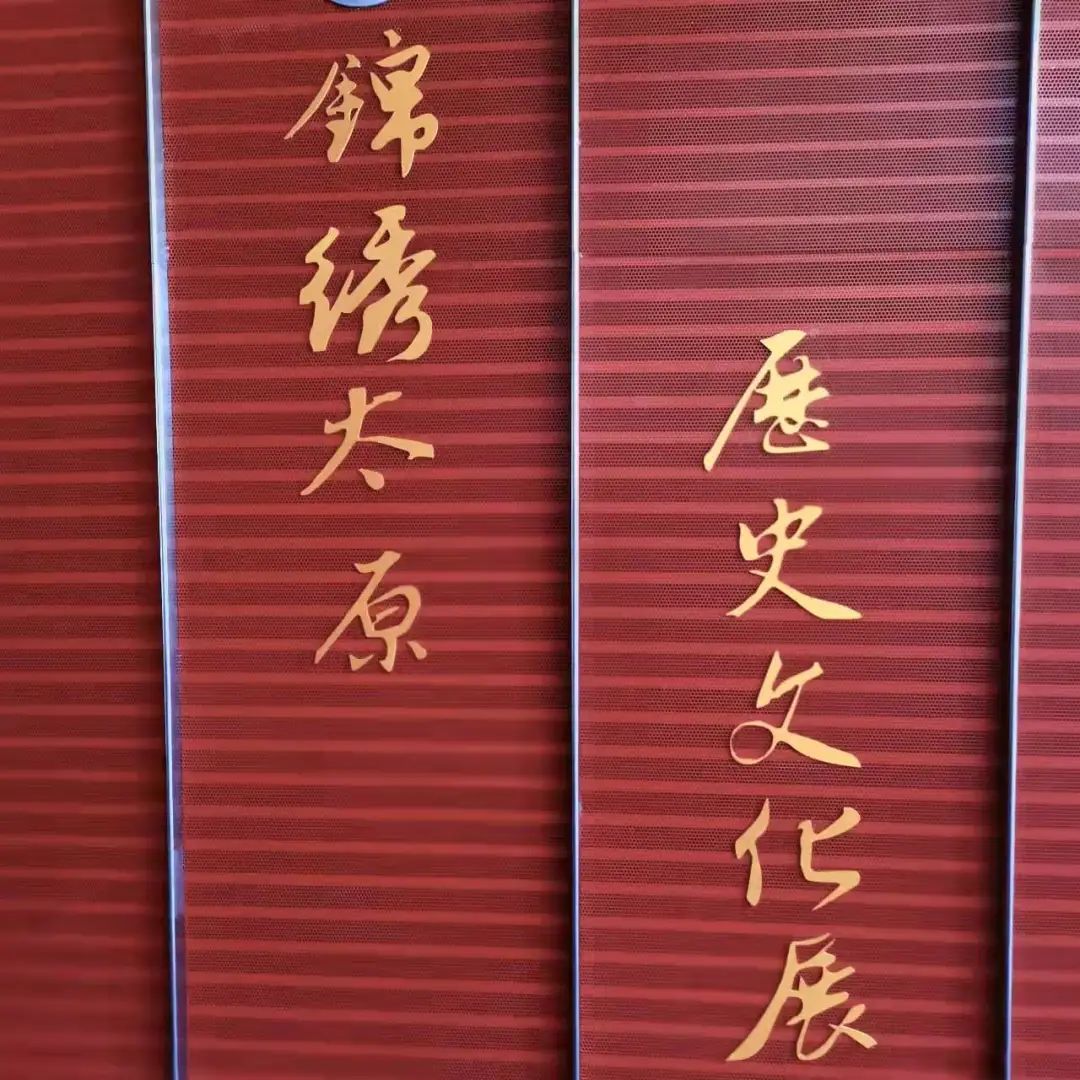 錦绣太原
歷史文化展